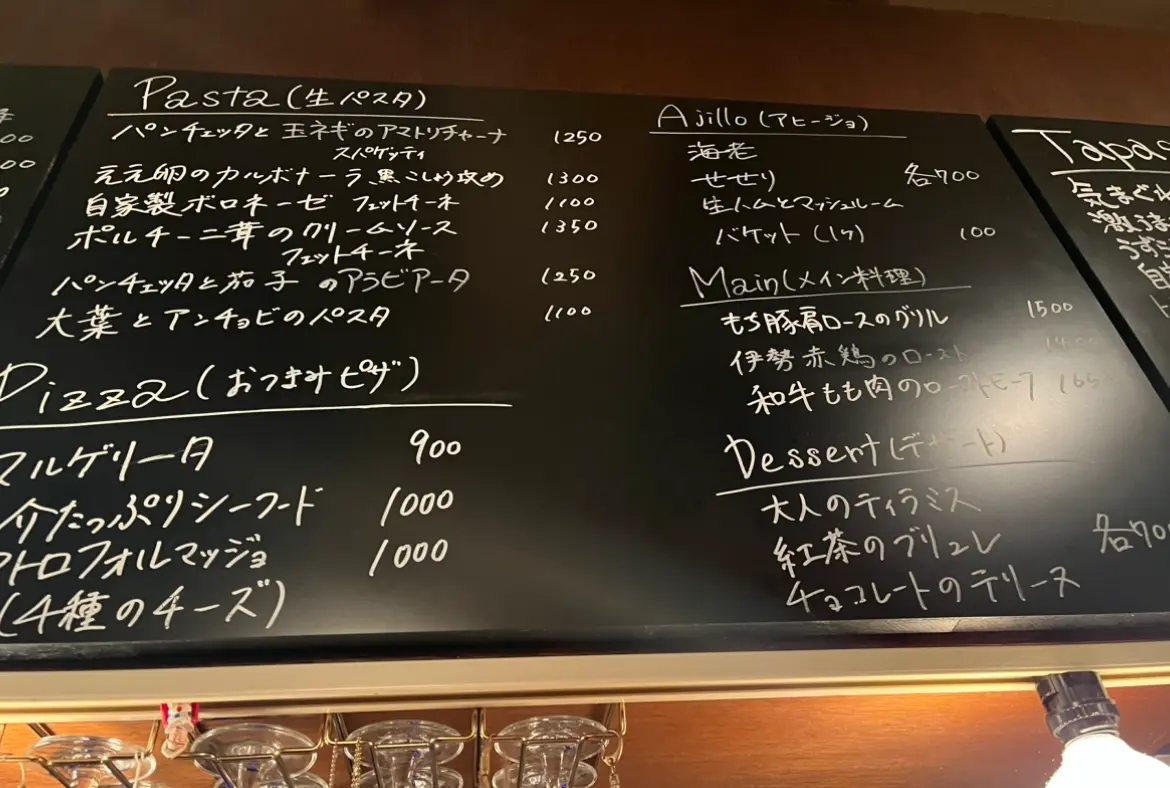 Pasta (生パスタ)
パンチェッタと玉ネギのアマトリチャーナ 1250
スパゲッティ
ええ卵のカルボナーラ 黒こしょう攻め 1300
自家製ボロネーゼ フェットチーネ 1100
ポルチーニ茸のクリームソース 1350
フェットチーネ
パンチェッタと茄子のアラビアータ 1250
大葉とアンチョビのパスタ 1100
Pizza (おつまみピザ)
マルゲリータ 900
介たっぷりシーフード 1000
クアトロフォルマッジョ 1000
(4種のチーズ)
Ajillo (アヒージョ)
海老
せせり 各700
生ハムとマッシュルーム
バケット (1ヶ) 100
Main (メイン料理)
もち豚肩ロースのグリル 1500
伊勢赤鶏のロースト 1400
和牛もも肉のローストビーフ 165
Dessert (デザート)
大人のティラミス
紅茶のブリュレ 各700
チョコレートのテリーヌ
Tapas
気まぐれ
激うま
うずら